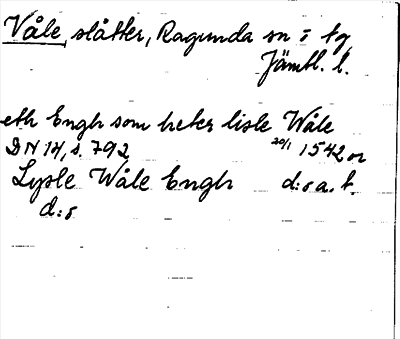 Våle, slåtter, Ragunda sn o tg
Jämtl. l.
eth Engh som heter lisle Wåle
DN 14, s. 792 20/1 1542 or
Lysle Wåle Engh d:o a. st.
d:o